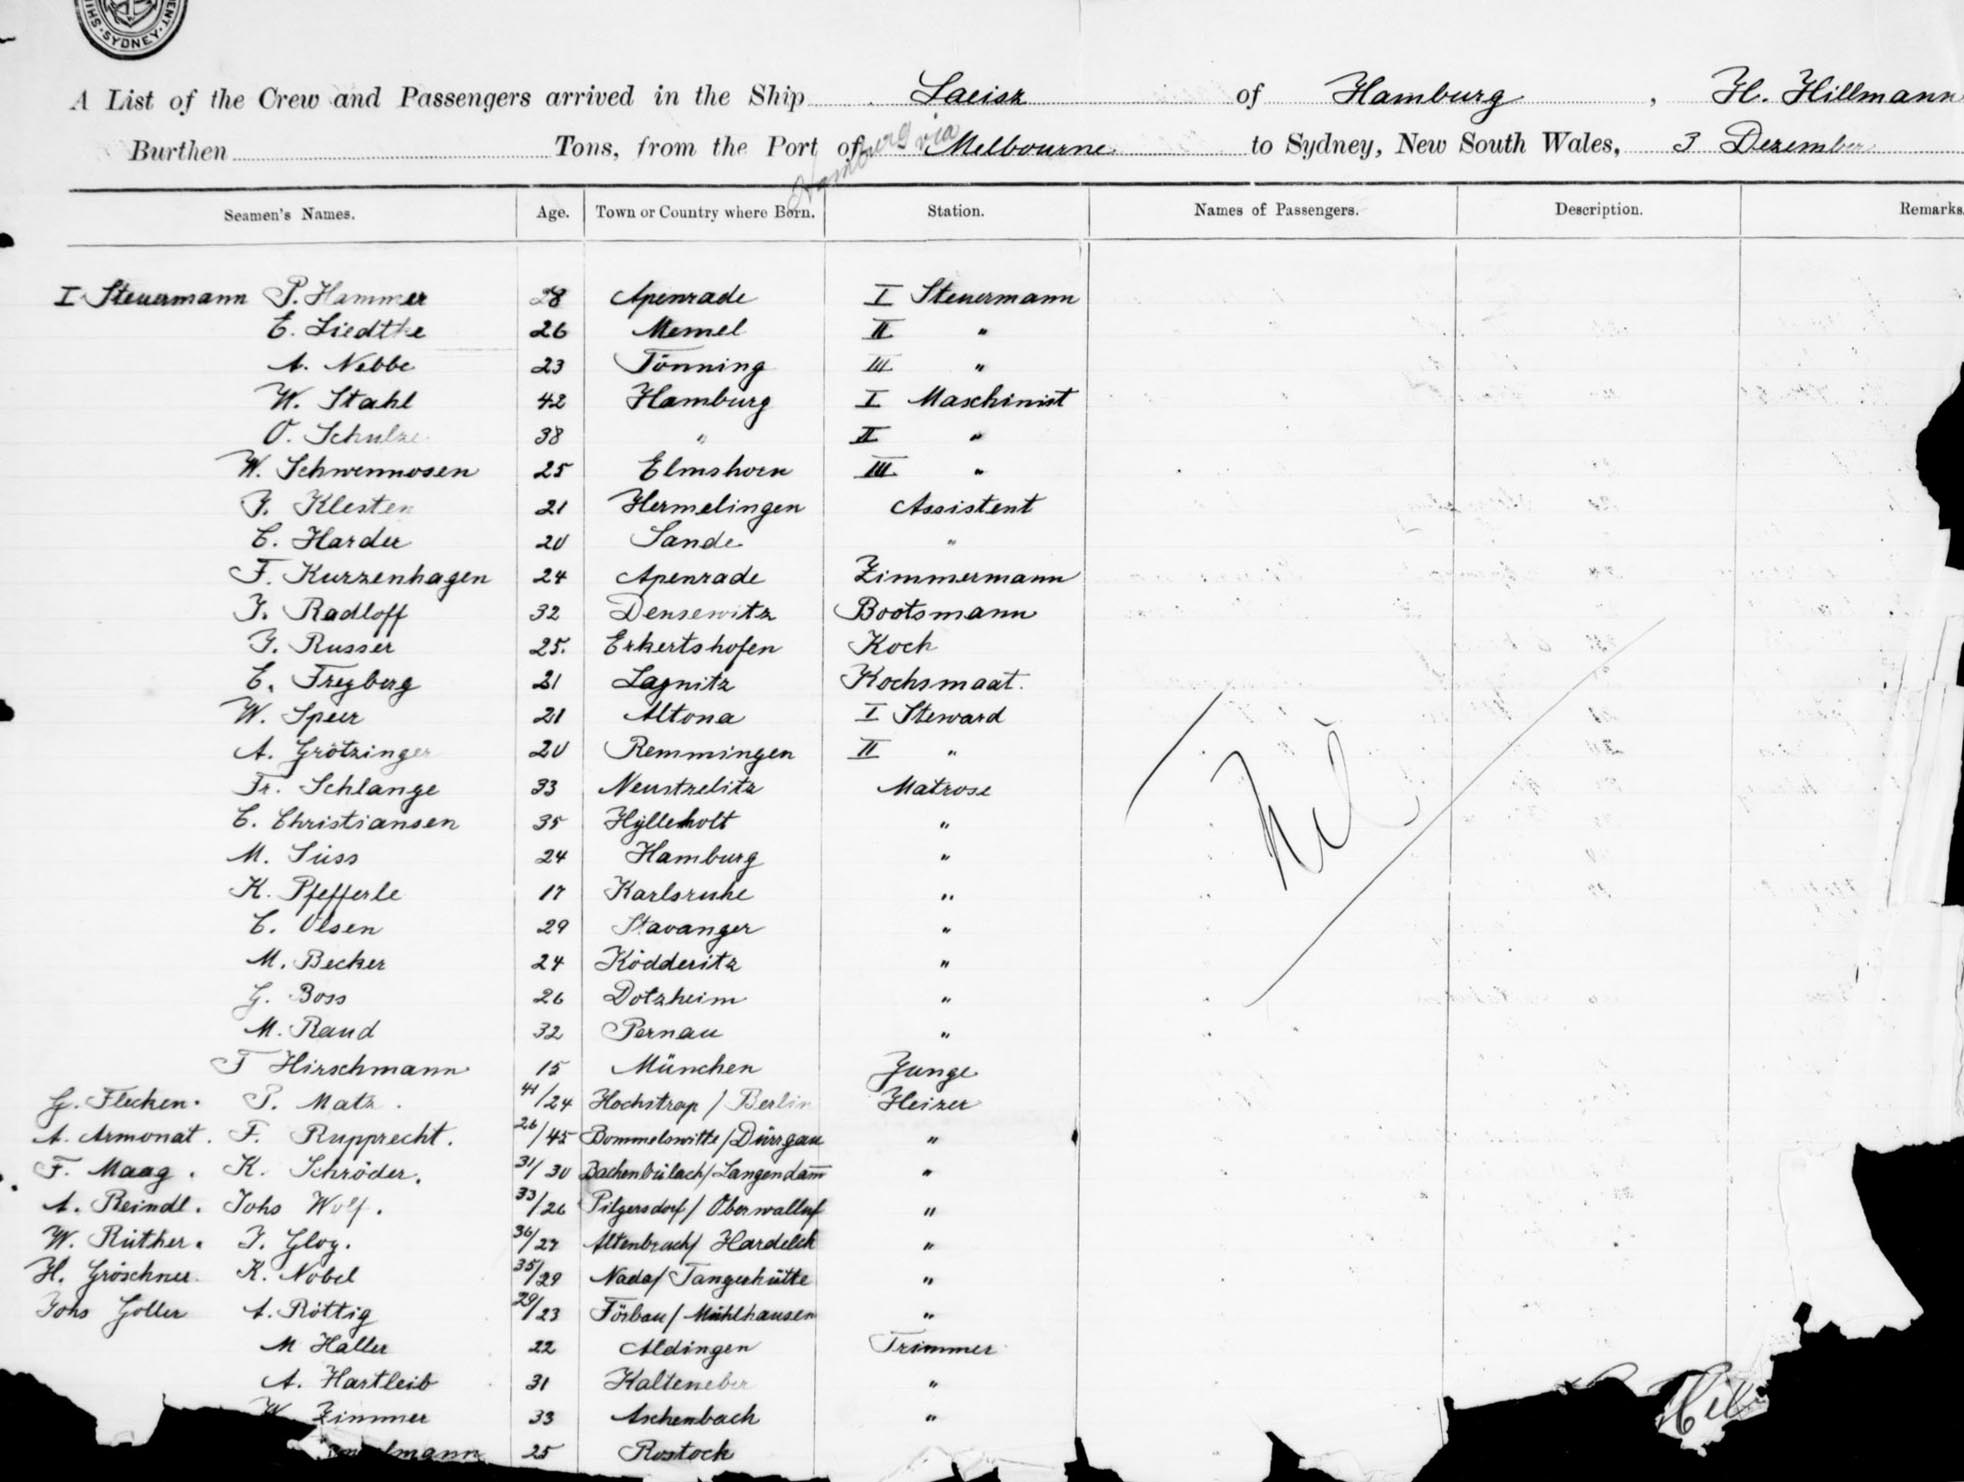 SHIP
MENT
SYDNEY
A List of the Crew and Passengers arrived in the Ship Laeisz of Hamburg, H. Hillmann
Hamburg via
Burthen Tons, from the Port of Melbourne to Sydney, New South Wales, 3 Dezember
Seamen's Names. Age. Town or Country where Born. Station. Names of Passengers. Description. Remarks
I Steuermann P. Hammer 28 Apenrade I Steuermann
E. Liedtke 26 Memel II "
A. Nebbe 23 Tönning III "
W. Stahl 42 Hamburg I Maschinist
O. Schulze 38 " II "
W. Schwennosen 25 Elmshorn III "
J. Klesten 21 Hermelingen Assistent
E. Harder 20 Sande "
F. Kurzenhagen 24 Apenrade Zimmermann
J. Radloff 32 Densewitz Bootsmann
J. Russer 25. Erkertshofen Koch
E. Freyberg 21 Lagnitz Kochsmaat.
W. Speer 21 Altona I Steward
A. Grötzinger 20 Remmingen II "
Fr. Schlange 33 Neustrelitz Matrose
C. Christiansen 35 Hylleholt "
Nil
M. Süss 24 Hamburg "
K. Pfefferle 17 Karlsruhe "
C. Olsen 29 Stavanger "
M. Becker 24 Ködderitz "
G. Boss 26 Dotzheim "
M. Raud 32 Pernau "
F Hirschmann 15 München Junge
G. Flecken. P. Matz. 41/24 Hochstrap / Berlin Heizer
A. Armonat. F. Rupprecht. 26/45 Bommelswitte / Dürrgau "
F. Maag. K. Schröder. 31/30 Bachenbülach / Langendam̅ "
A. Reindl. Johs Wolf. 33/26 Pilgersdorf / Oberwalluf "
W. Rüther. J. Gloy. 36/27 Altenbrach / Hardelek "
H. Gröschner. K. Nobel 35/29 Nada / Tangerhütte "
Johs Goller A. Röttig 29/23 Förbau / Mühlhausen "
M Haller 22 Aldingen Trimmer
A. Hartleib 31 Kalteneber "
W Zimmer 33 Aschenbach "
lmann 25 Rostock